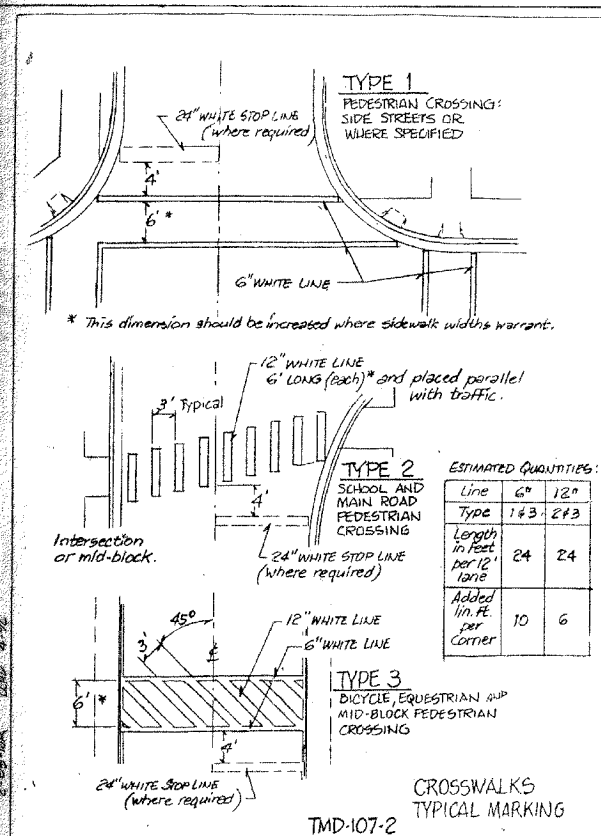 TYPE 1
PEDESTRIAN CROSSING:
SIDE STREETS OR
WHERE SPECIFIED
24" WHITE STOP LINE
(where required)
4'
6' *
6" WHITE LINE
* This dimension should be increased where sidewalk widths warrant.
12" WHITE LINE
6' LONG (each)* and placed parallel
with traffic.
3' Typical
TYPE 2
SCHOOL AND
MAIN ROAD
PEDESTRIAN
CROSSING
4'
24" WHITE STOP LINE
(where required)
Intersection
or mid-block.
ESTIMATED QUANTITIES:
Line 6" 12"
Type 1&3 2&3
Length
in Feet
per 12'
lane
24 24
Added
lin. ft.
per
Corner
10 6
45°
3'
℄
12" WHITE LINE
6" WHITE LINE
6' *
TYPE 3
BICYCLE, EQUESTRIAN AND
MID-BLOCK PEDESTRIAN
CROSSING
4'
24" WHITE STOP LINE
(where required)
CROSSWALKS
TYPICAL MARKING
TMD-107-2